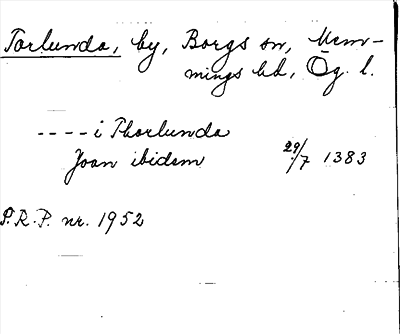 Torlunda, by, Borgs sn, Mem-
mings hd, Ög. l.
---- i Thorlunda
Joan ibidem 29/7 1383
P.R.P. nr. 1952